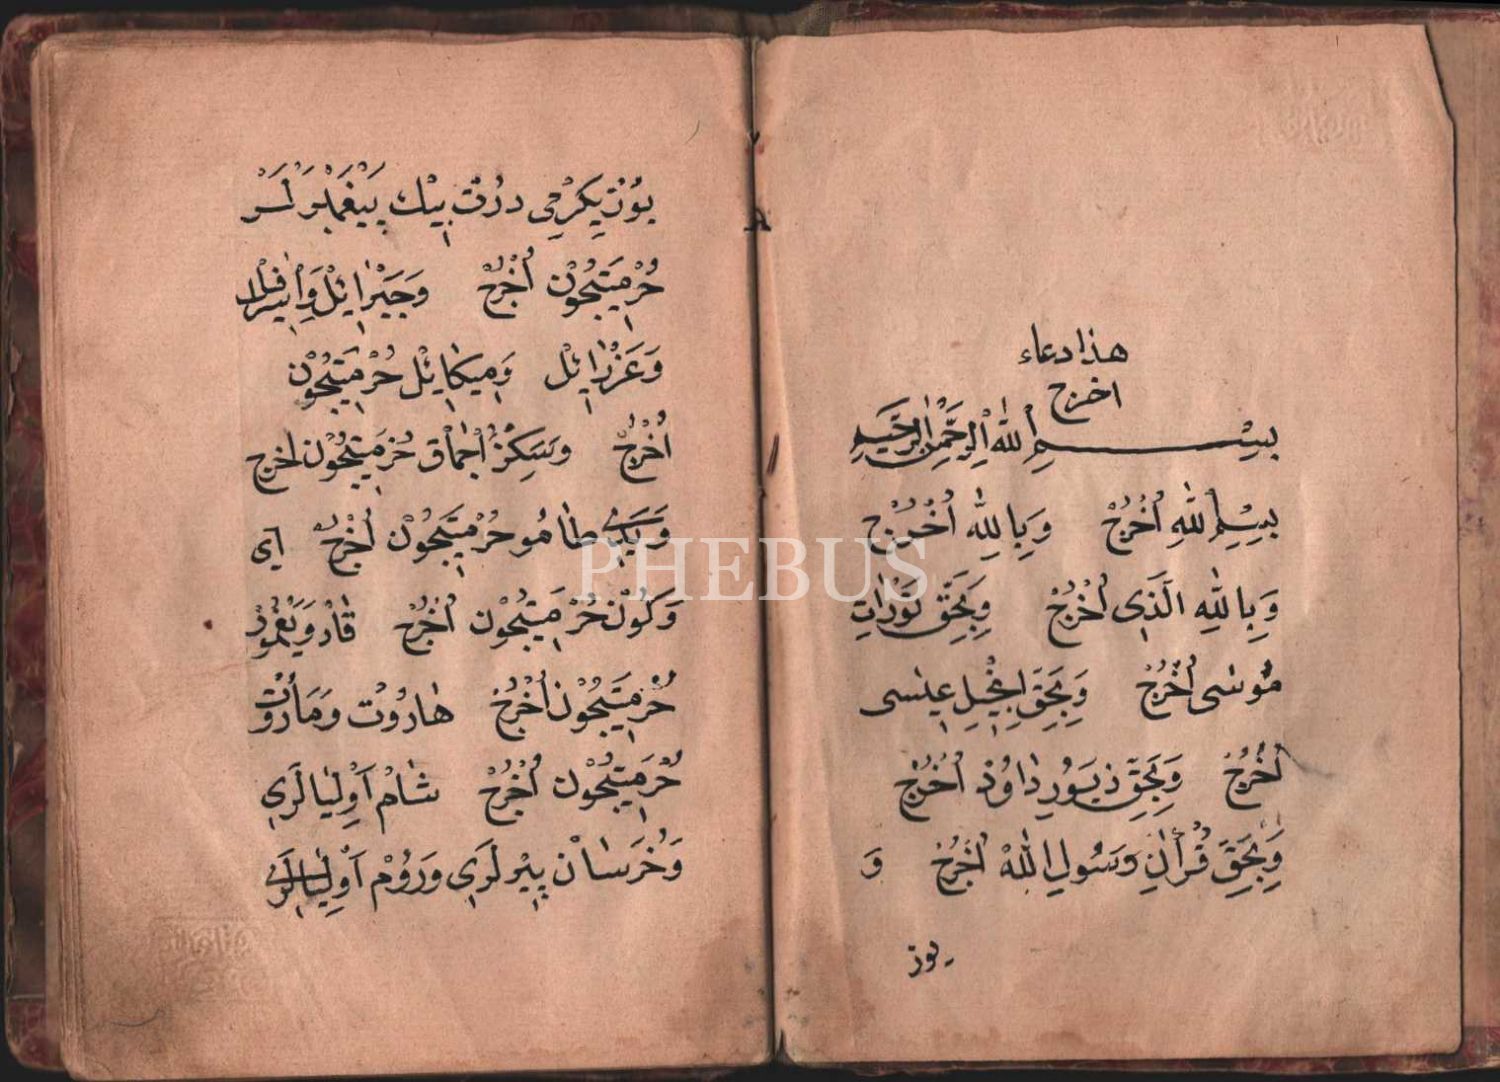 هذا دعاء
اخرج
بِسْمِ اللهِ الرَّحْمٰنِ الرَّحِيمِ
بِسْمِ اللهِ اُخْرُجْ وَبِاللهِ اُخْرُجْ
وَبِاللهِ الَّذِي اُخْرُجْ وَبِحَقِّ تَوْرَاتِ
مُوسٰى اُخْرُجْ وَبِحَقِّ اِنْجِيلِ عِيسٰى
اُخْرُجْ وَبِحَقِّ زَبُورِ دَاوُدْ اُخْرُجْ
وَبِحَقِّ قُرْاٰنِ رَسُولِ اللهْ اُخْرُجْ وَ
يوز
يُوزْ يِكِرْمِي دُرْتْ بِيْكْ پَيْغَمْبَرْلَرْ
حُرْمَتِيچُونْ اُخْرُجْ وَجَبْرَائِلْ وَاِسْرَافِلْ
وَعَزْرَائِلْ وَمِيكَائِلْ حُرْمَتِيچُونْ
اُخْرُجْ وَسَكِزْ اُچْمَاقْ حُرْمَتِيچُونْ اُخْرُجْ
وَيَدِي طَامُو حُرْمَتِيچُونْ اُخْرُجْ آي
وَكُونْ حُرْمَتِيچُونْ اُخْرُجْ قَارْ وَيَغْمُورْ
حُرْمَتِيچُونْ اُخْرُجْ هَارُوتْ وَمَارُوتْ
حُرْمَتِيچُونْ اُخْرُجْ شَامْ اَوْلِيَالَرِي
وَخُرَسَانْ پِيرْلَرِي وَرُومْ اَوْلِيَالَرِي
PHEBUS